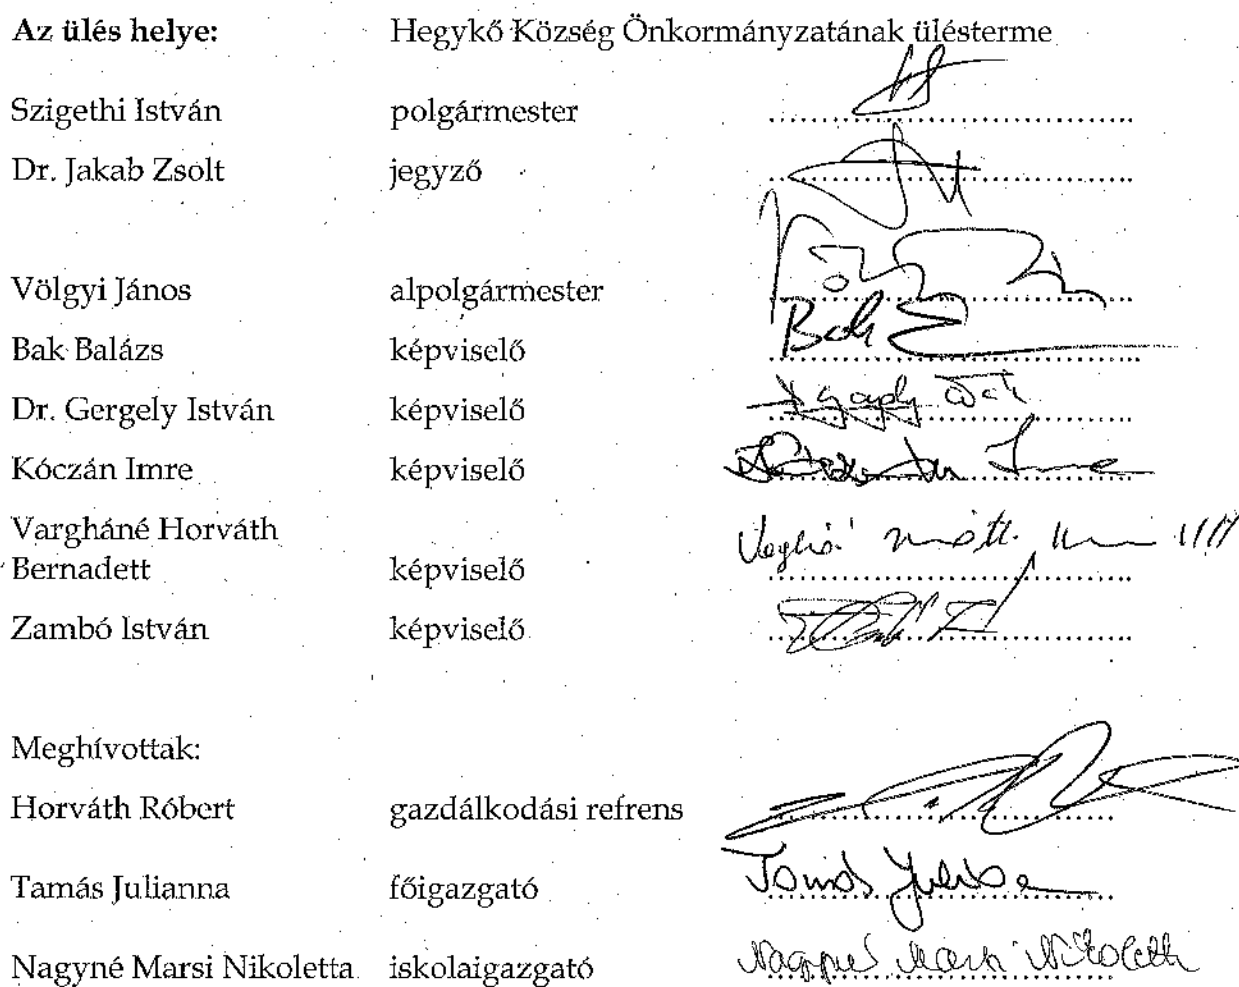 Az ülés helye: Hegykő Község Önkormányzatának ülésterme
Szigethi István polgármester
Dr. Jakab Zsolt jegyző
Völgyi János alpolgármester
Bak Balázs képviselő Bak
Dr. Gergely István képviselő
Kóczán Imre képviselő Imre
Vargháné Horváth
Bernadett képviselő
Zambó István képviselő
Meghívottak:
Horváth Róbert gazdálkodási refrens
Tamás Julianna főigazgató Tamás
Nagyné Marsi Nikoletta iskolaigazgató Nagyné Marsi Nikoletta